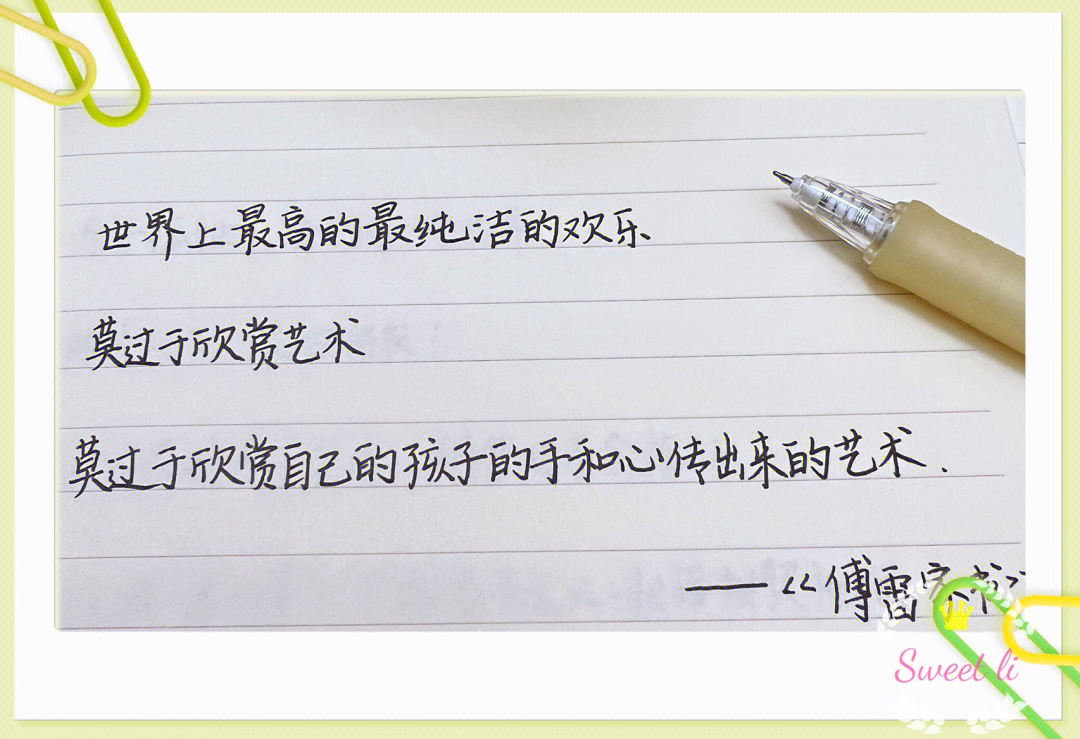 世界上最高的最纯洁的欢乐
莫过于欣赏艺术
莫过于欣赏自己的孩子的手和心传出来的艺术.
——《傅雷家书》
Sweet li